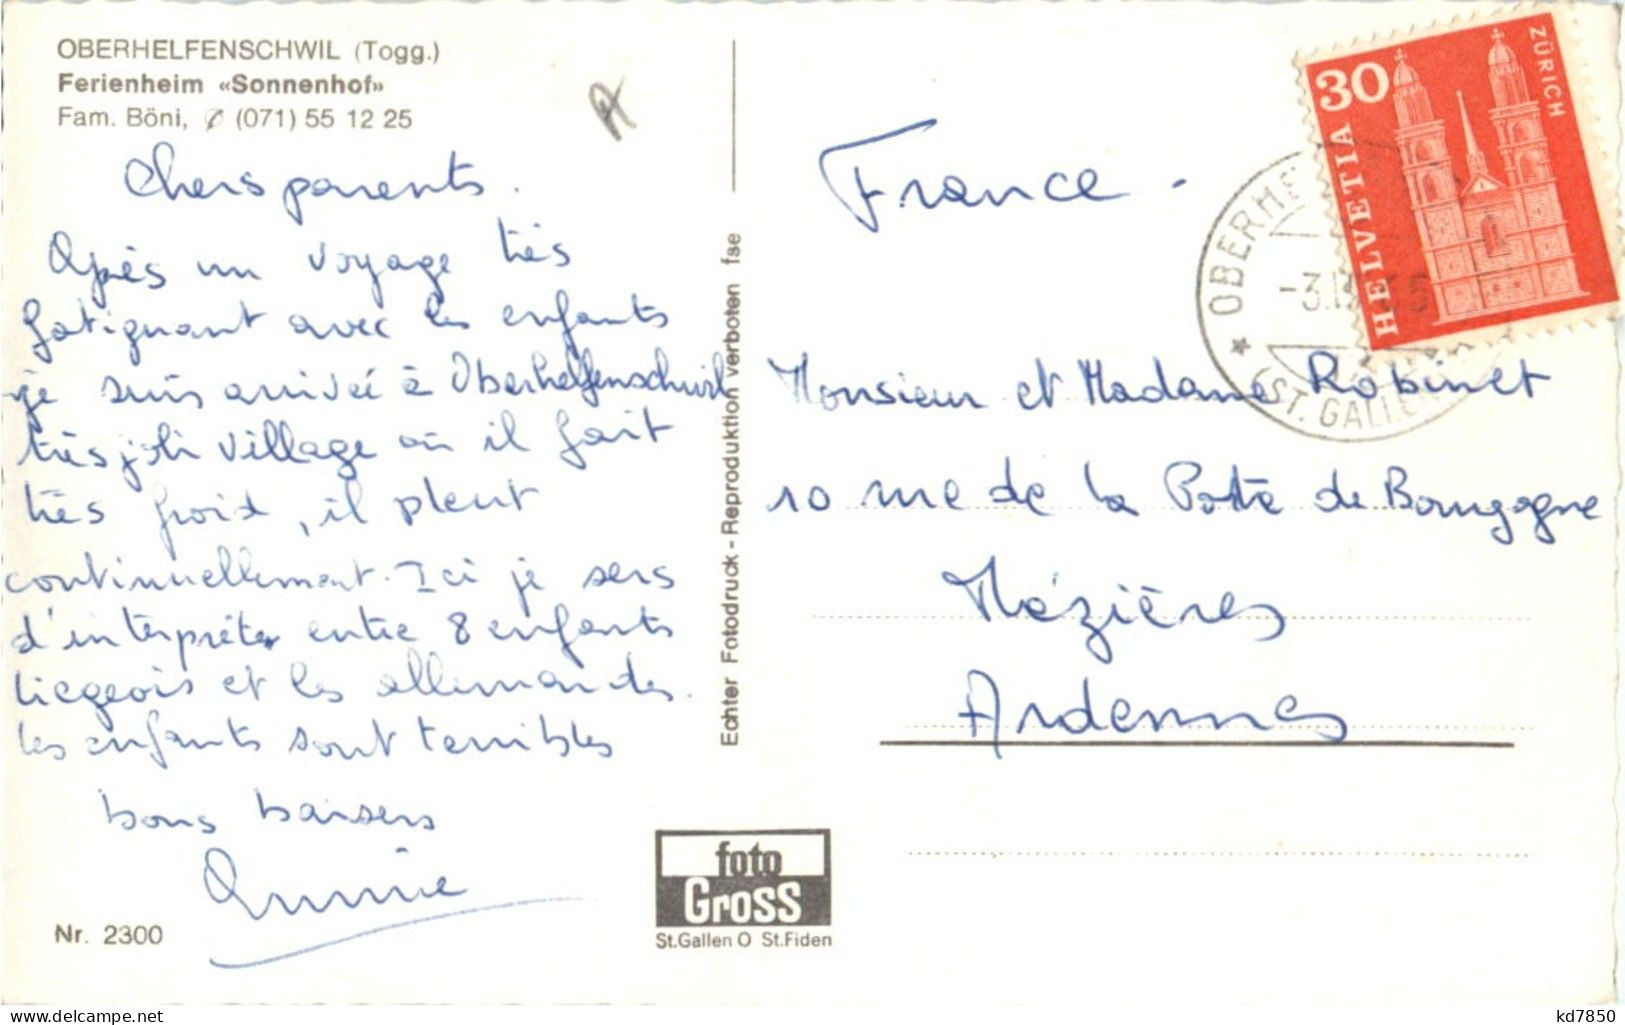 OBERHELFENSCHWIL (Togg.)
Ferienheim «Sonnenhof»
Fam. Böni, ✆ (071) 55 12 25
A
Chers parents.
Après un voyage très
fatignant avec les enfants
je suis arrivée à Oberhelfenschwil
très joli village où il fait
très froid, il pleut
continuellement. Ici je sers
d'interprète entre 8 enfants
liegeois et les allemandes.
les enfants sont terribles
bons baisers
Annie
Nr. 2300
Echter Fotodruck - Reproduktion verboten fse
foto
Gross
St.Gallen O St.Fiden
France -
Monsieur et Madame Robinet
10 rue de la Porte de Bourgogne
Mézières
Ardennes
30
HELVETIA
ZÜRICH
OBERHE
-3.
(ST. GALLEN
kd7850